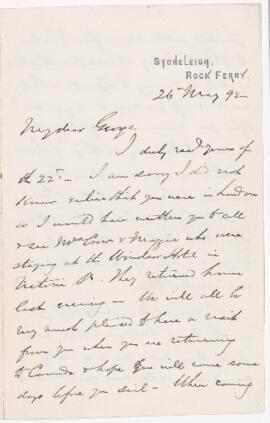 STONELEIGH,
ROCK FERRY.
26 May 92
My dear George
I duly recd yours of
the 22nd – I am sorry I did not
know sooner that you were in London
or I would have written you to call
& see Mrs & Maggie who were
staying at the Windsor Hotel in
Victoria St. They returned home
last evening – We will all be
very much pleased to have a visit
from you when you are returning
to Canada & hope you will come some
days before you sail – When coming